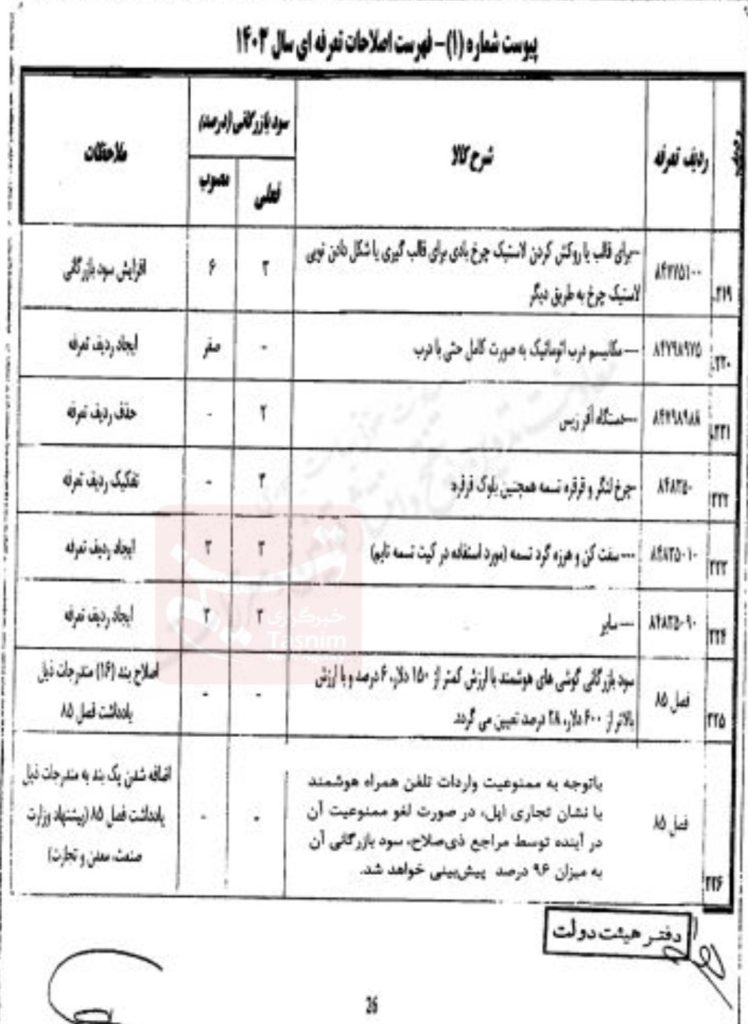 پیوست شماره (۱)- فهرست اصلاحات تعرفه ای سال ۱۴۰۳
ردیف
ردیف تعرفه
شرح کالا
سود بازرگانی (درصد)
ملاحظات
فعلی
مصوب
۲۱۹.
۸۴۷۷۵۱۰۰
--برای قالب یا روکش کردن لاستیک چرخ بادی برای قالب گیری یا شکل دادن تویی
لاستیک چرخ به طریق دیگر
۳
۶
افزایش سود بازرگانی
۲۲۰.
۸۴۷۹۸۹۷۵
--- مکانیسم درب اتوماتیک به صورت کامل حتی با درب
-
صفر
ایجاد ردیف تعرفه
۲۲۱.
۸۴۷۹۸۹۸۸
---دستگاه آفر زیس
۲
-
حذف ردیف تعرفه
۲۲۲
۸۴۸۳۵۰
-چرخ لنگر و قرقره تسمه همچنین بلوک قرقره:
۳
-
تفکیک ردیف تعرفه
۲۲۳
۸۴۸۳۵۰۱۰
--- سفت کن و هرزه گرد تسمه (مورد استفاده در کیت تسمه تایم)
۳
۳
ایجاد ردیف تعرفه
۲۲۴
۸۴۸۳۵۰۹۰
--- سایر
۳
۳
ایجاد ردیف تعرفه
۲۲۵
فصل ۸۵
سود بازرگانی گوشی های هوشمند با ارزش کمتر از ۱۵۰ دلار، ۶ درصد و با ارزش
بالاتر از ۶۰۰ دلار، ۲۸ درصد تعیین می گردد.
-
-
اصلاح بند (۱۶) مندرجات ذیل
یادداشت فصل ۸۵
۲۲۶
فصل ۸۵
باتوجه به ممنوعیت واردات تلفن همراه هوشمند
با نشان تجاری اپل، در صورت لغو ممنوعیت آن
در آینده توسط مراجع ذی‌صلاح، سود بازرگانی آن
به میزان ۹۶ درصد پیش‌بینی خواهد شد.
-
-
اضافه شدن یک بند به مندرجات ذیل
یادداشت فصل ۸۵ (پیشنهاد وزارت
صنعت، معدن و تجارت)
خبرگزاری
تسنیم
Tasnim
دفتر هیئت دولت
26